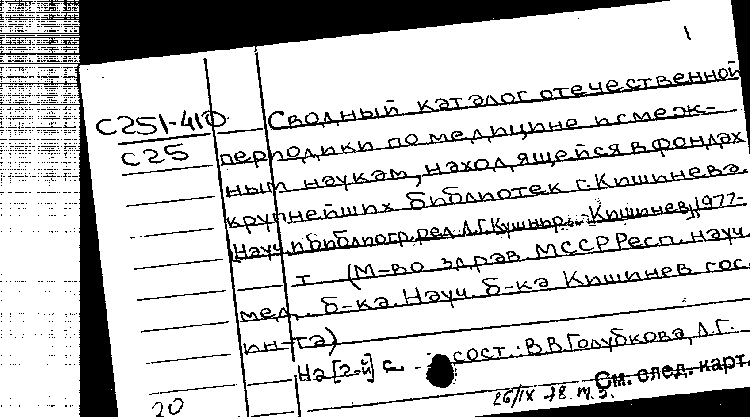 1
С251-410
С25
Сводный каталог отечественной
периодики по медицине и смеж-
ным наукам, находящейся в фондах
крупнейших библиотек г. Кишинева.
Науч. и библиогр. ред. Л.Г. Кушнир. Кишинев, 1977-
т (М-во здрав. МССР Респ. науч.
мед. б-ка. Науч. б-ка Кишинев гос.
ин-та)
На [2-й] с. сост.: В.В. Голубкова, Л.Г.
20
26/IX-78
См. след. карт.